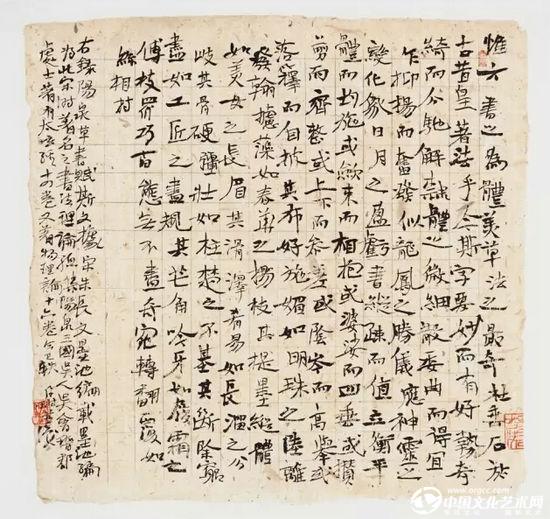 惟六書之為體美草法之最奇杜垂名於
古昔皇著法乎今斯字要妙而有好勢奇
綺而分馳解隸體之微細散委曲而得宜
乍抑揚而奮發似龍鳳之勝儀應神靈之
變化象日月之盈虧書縱竦而值立衡平
體而均施或斂束而相抱或婆娑而四垂或攢
剪而齊整或上下而參差或陰岑而高舉或
落籜而自披其布好施媚如明珠之陸離
發翰攄藻如春華之揚枝其提墨縱體
如美女之長眉其滑澤肴易如長溜之分
岐其骨硬彊壯如柱楚之不基其斷除窮
盡如工匠之盡規其芒角吟牙如嚴霜之
傅枝眾巧百態無不盡奇宛轉翻覆如
絲相持
右錄陽泉草書賦斯文據宋朱長文墨池編載墨池編
為此宋時著名之書法理論陽泉三國吳人吳會稽郡
處士著有太玄經十四卷又著物理論十六卷今已軼
中国文化艺术网
www.orgcc.com